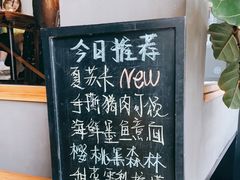 今日推荐
夏苏卡 New
手撕猪肉可颂
海鲜墨鱼意面
樱桃黑森林